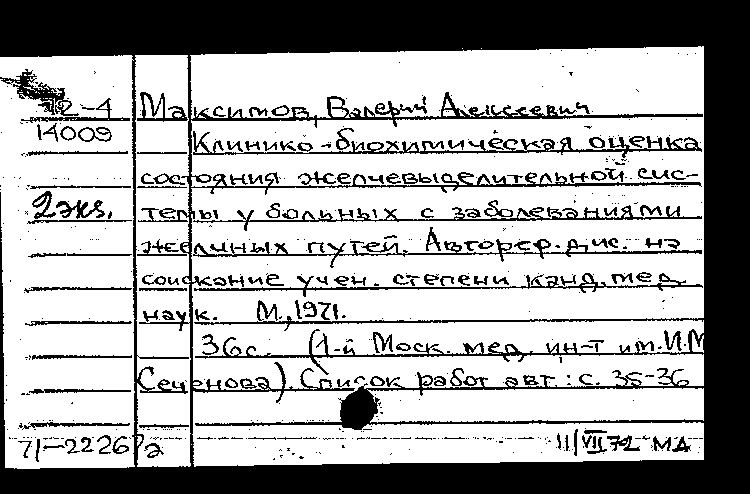 72-4 Максимов, Валерий Алексеевич
14009 Клинико-биохимическая оценка
состояния желчевыделительной сис-
2экз. темы у больных с заболеваниями
желчных путей. Автореф. дис. на
соискание учен. степени канд. мед.
наук. М., 1971.
36с. (1-й Моск. мед. ин-т им. И.М
Сеченова). Список работ авт.: с. 35-36
71-22267а 11/VII 72 МД